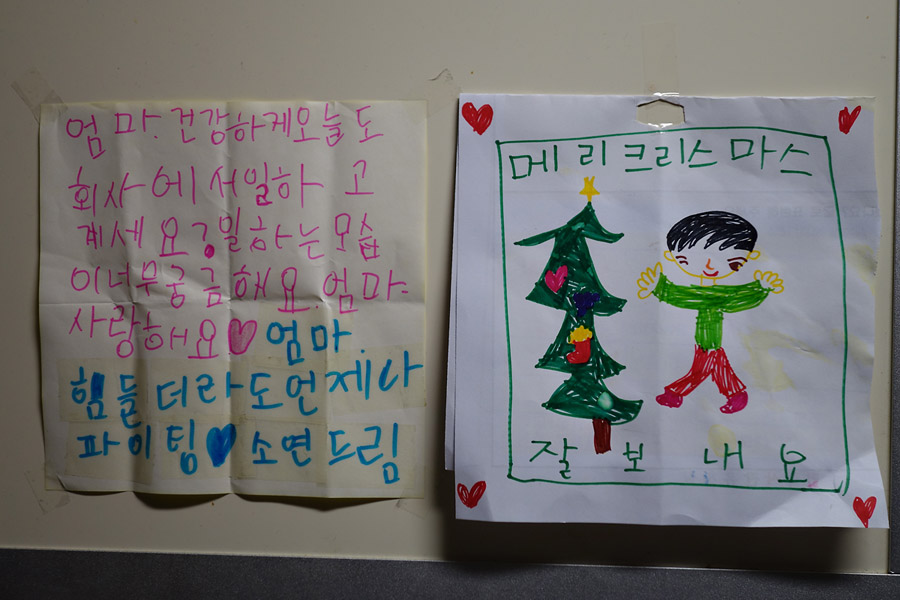 엄마. 건강하게 오늘도
회사에서 일하고
계세요? 일하는 모습
이 너무 궁금해요. 엄마
사랑해요♥ 엄마.
힘들더라도 언제나
파이팅♥ 소연 드림
메리크리스마스
잘 보내요